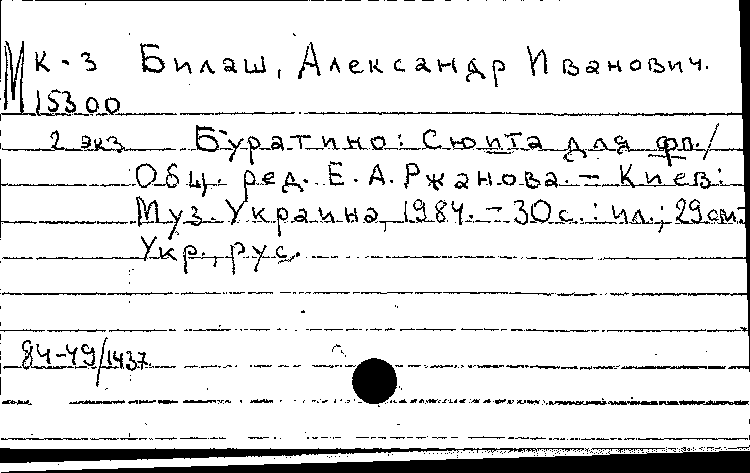 М к-3 Билаш, Александр Иванович.
15300
2 экз Буратино: Сюита для фп./
Общ. ред. Е. А. Ржанова. – Киев:
Муз. Украина, 1984. – 30 с.: ил.; 29 см.
Укр., рус.
84-49/1437